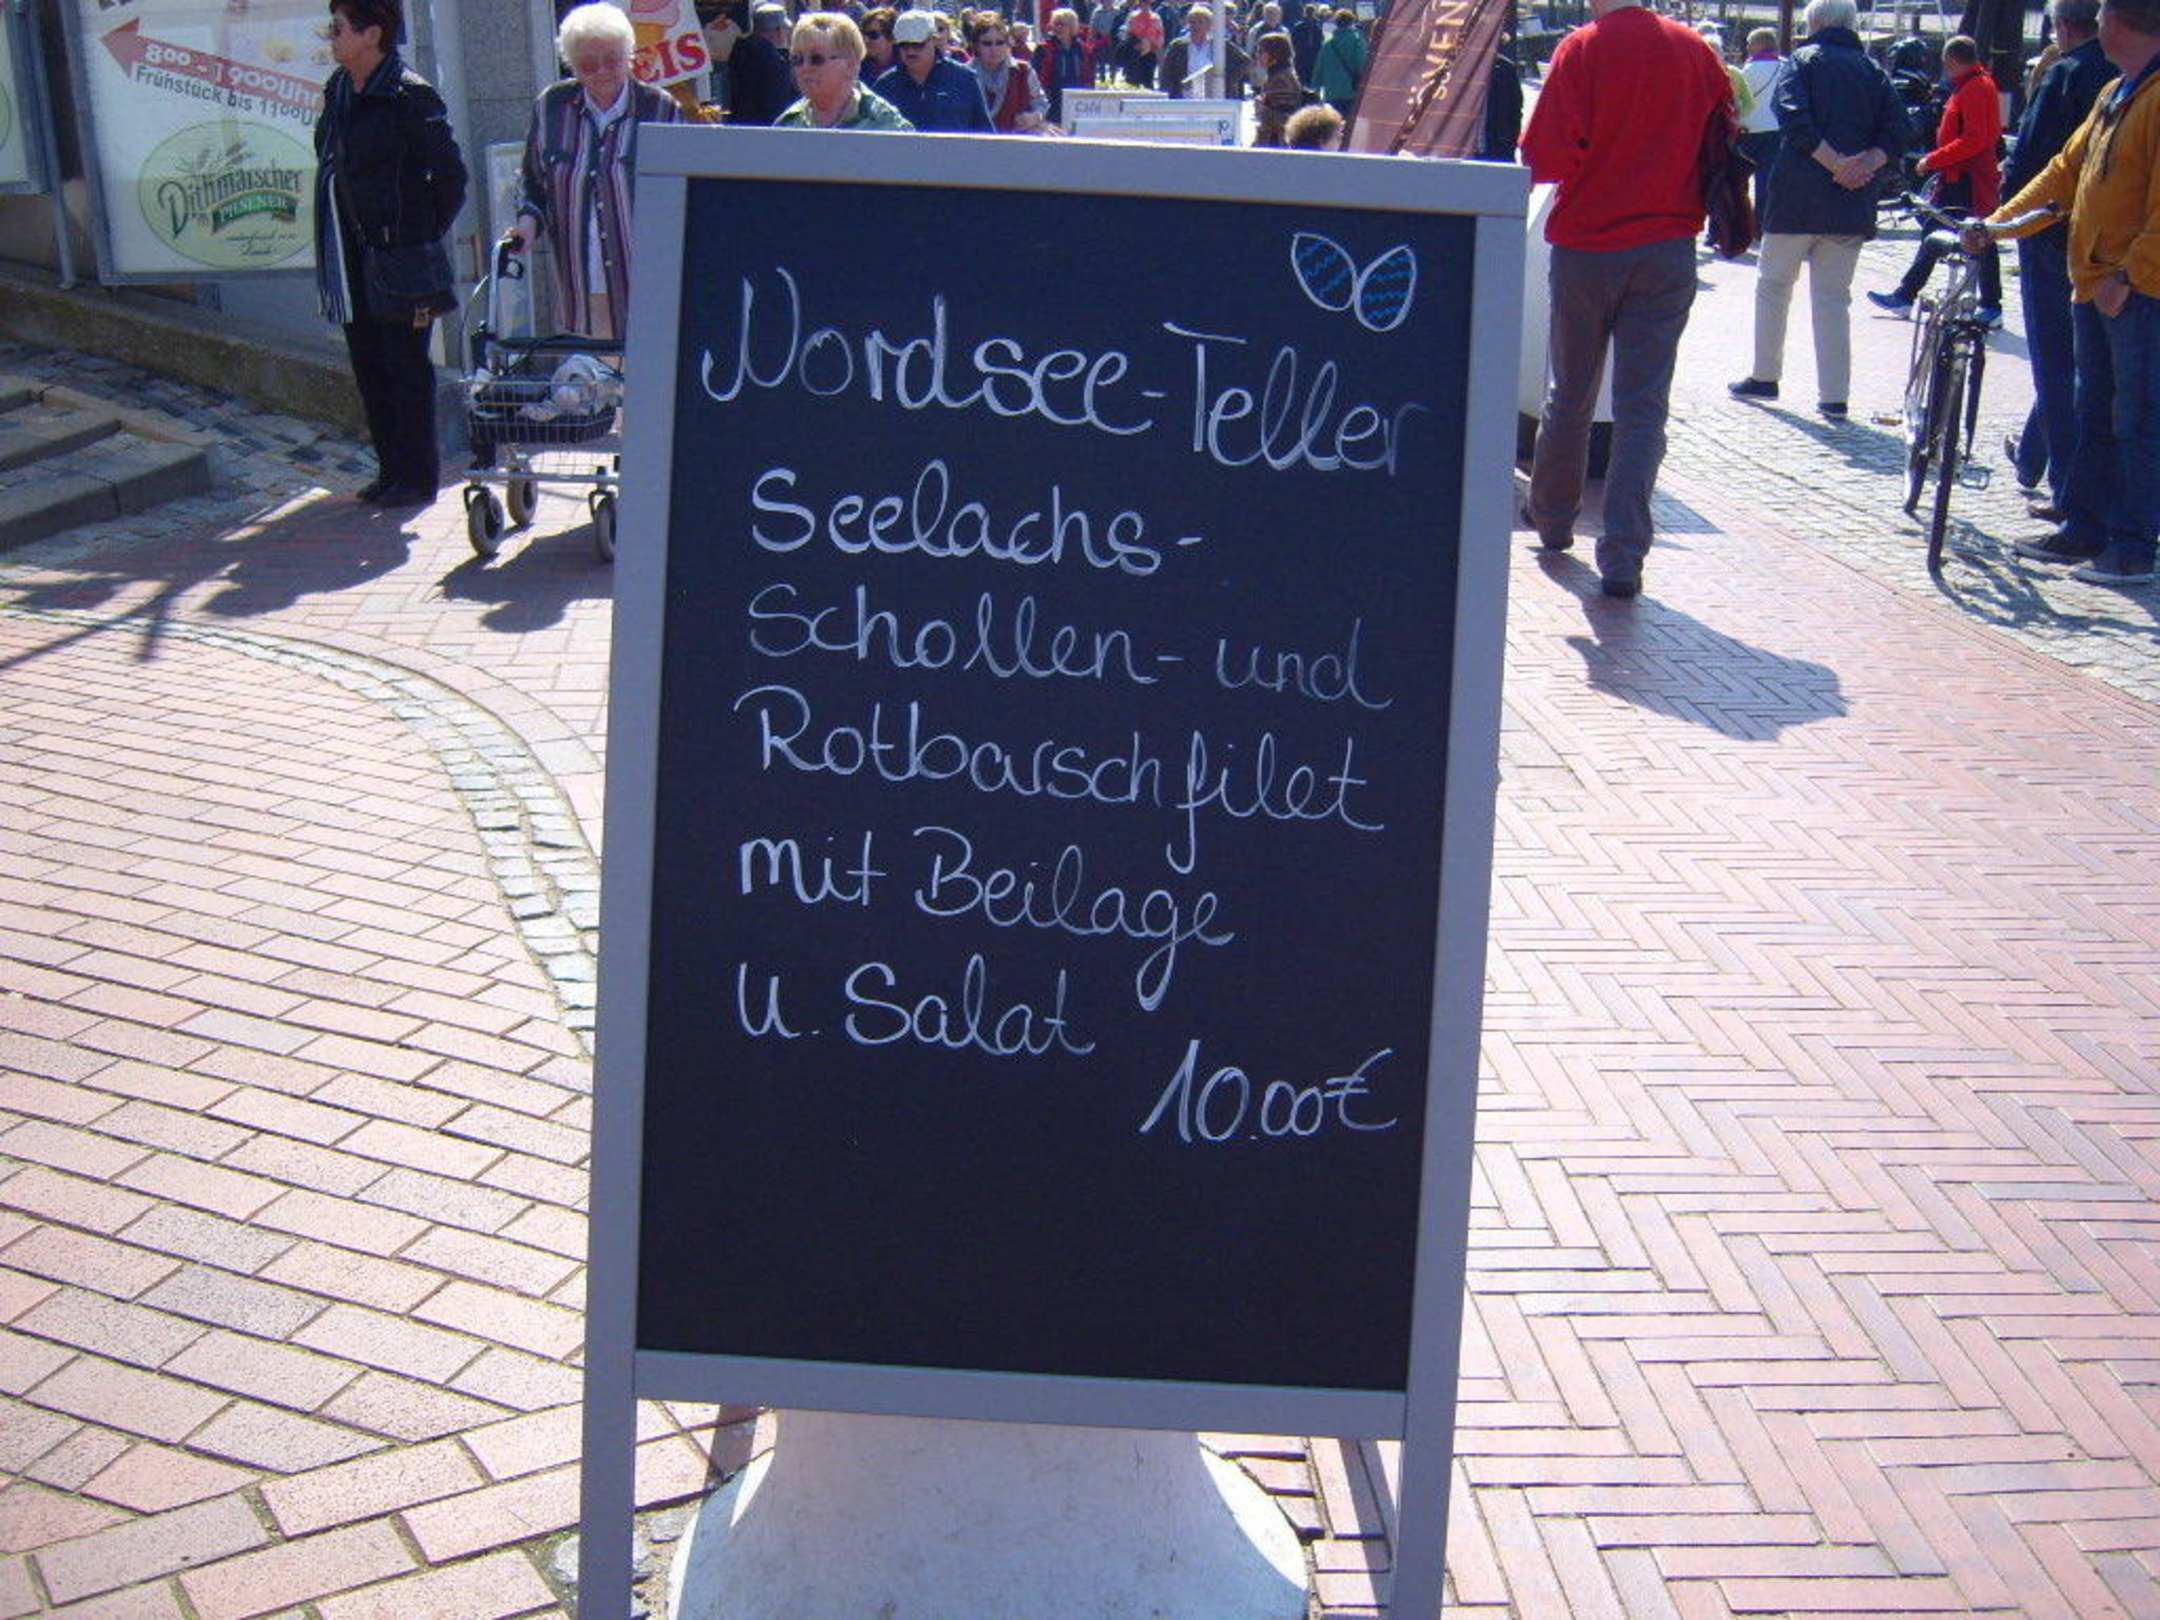 800 - 1900Uhr
Frühstück bis 1100U
Dithmarscher
PILSENER
EIS
Café
MÖVEN
Nordsee-Teller
Seelachs-
Schollen- und
Rotbarschfilet
mit Beilage
u. Salat
10.00€